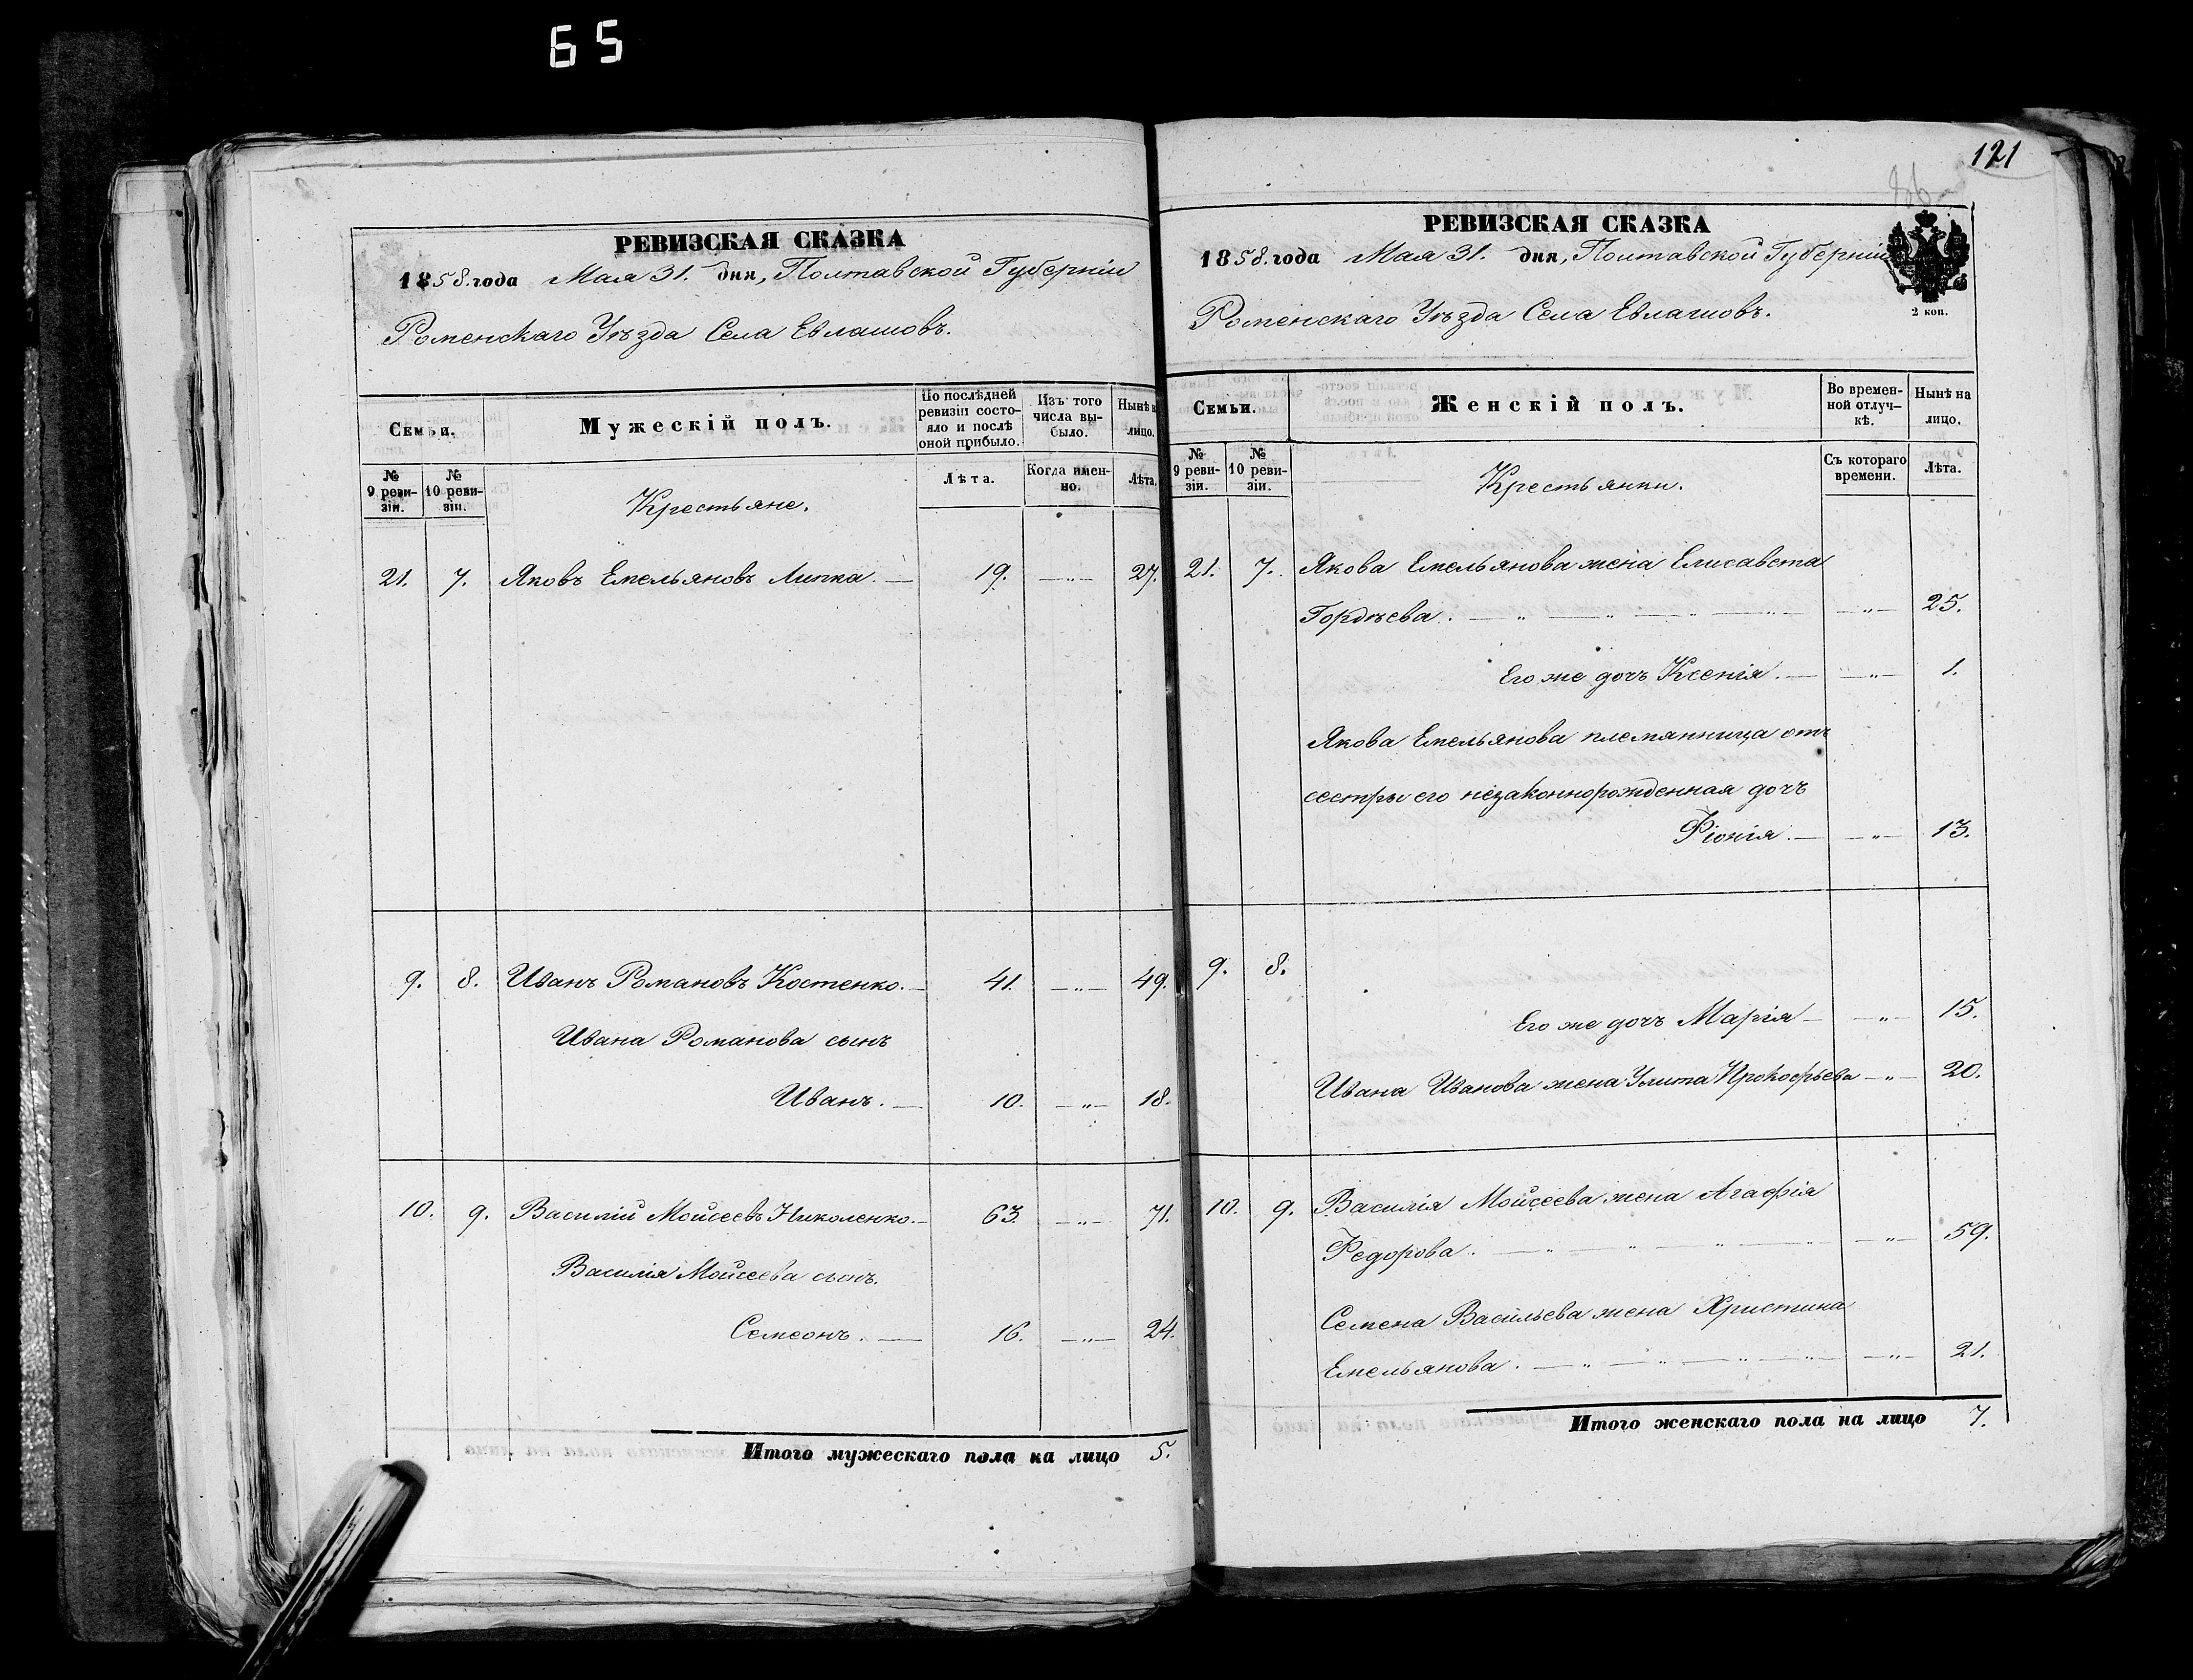 65
РЕВИЗСКАЯ СКАЗКА
1858. года Мая 31. дня, Полтавской Губерніи
Роменскаго Уѣзда Села Евлашовъ.
Семьи.
Мужескій полъ.
По послѣдней ревизіи состояло и послѣ оной прибыло.
Изъ того числа выбыло.
Нынѣ на лицо.
№ 9 ревизіи.
№ 10 ревизіи.
Крестьяне.
Лѣта.
Когда именно.
Лѣта.
21. 7. Яковъ Емельяновъ Липка. — 19. —„— 27.
9. 8. Иванъ Романовъ Костенко. — 41. —„— 49.
Ивана Романова сынъ
Иванъ. — 10. —„— 18.
10. 9. Василій Моисеевъ Николенко. — 63. —„— 71.
Василія Моисеева сынъ.
Семеонъ. — 16. —„— 24.
Итого мужескаго пола на лицо 5.
121
86
РЕВИЗСКАЯ СКАЗКА
1858. года Мая 31. дня, Полтавской Губерніи
Роменскаго Уѣзда Села Евлашовъ.
2 коп.
Семьи.
Женскій полъ.
Во временной отлучкѣ.
Нынѣ на лицо.
№ 9 ревизіи.
№ 10 ревизіи.
Крестьянки.
Съ котораго времени.
Лѣта.
21. 7. Якова Емельянова жена Елисавета
Гордѣева. — „ — „ — „ — „ — —„— 25.
Его же дочь Ксенія. — —„— 1.
Якова Емельянова племянница отъ
сестры его незаконнорожденная дочь
Фіонія. — —„— 13.
9. 8.
Его же дочь Марія — —„— 15.
Ивана Иванова жена Улита Прокофьева —„— 20.
10. 9. Василія Моисеева жена Агафія
Федорова. — „ — „ — „ — „ — —„— 59.
Семена Васильева жена Христина
Емельянова. — „ — „ — „ — „ — —„— 21.
Итого женскаго пола на лицо 7.